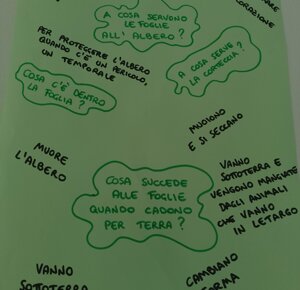 A COSA SERVONO
LE FOGLIE
ALL' ALBERO?
PER PROTEGGERE L'ALBERO
QUANDO C'È UN PERICOLO,
UN TEMPORALE
A COSA SERVE
LA CORTECCIA?
COSA C'È DENTRO
LA FOGLIA?
MUOIONO
E SI SECCANO
MUORE
L'ALBERO
COSA SUCCEDE
ALLE FOGLIE
QUANDO CADONO
PER TERRA?
VANNO
SOTTOTERRA E
VENGONO MANGIATE
DAGLI ANIMALI
CHE VANNO
IN LETARGO
VANNO
SOTTOTERRA
CAMBIANO
FORMA